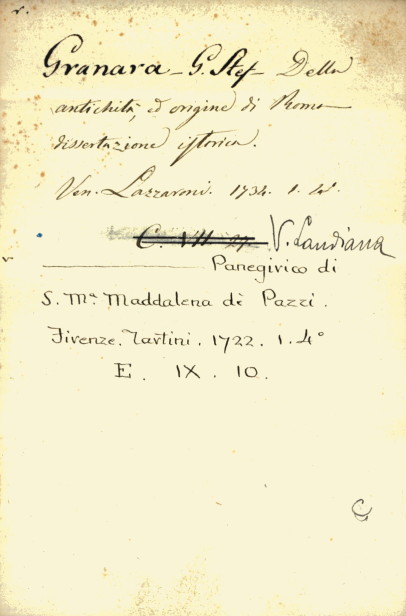 v.
Granara - G. Stef - Della
antichità, ed origine di Roma
dissertazione istorica.
Ven. Lazzaroni. 1734. 1. 4°.
C. VII 27. V. Landiana
v ———— Panegirico di
S. Mª Maddalena dè Pazzi.
Firenze. Tartini. 1722. 1. 4°
E. IX. 10.